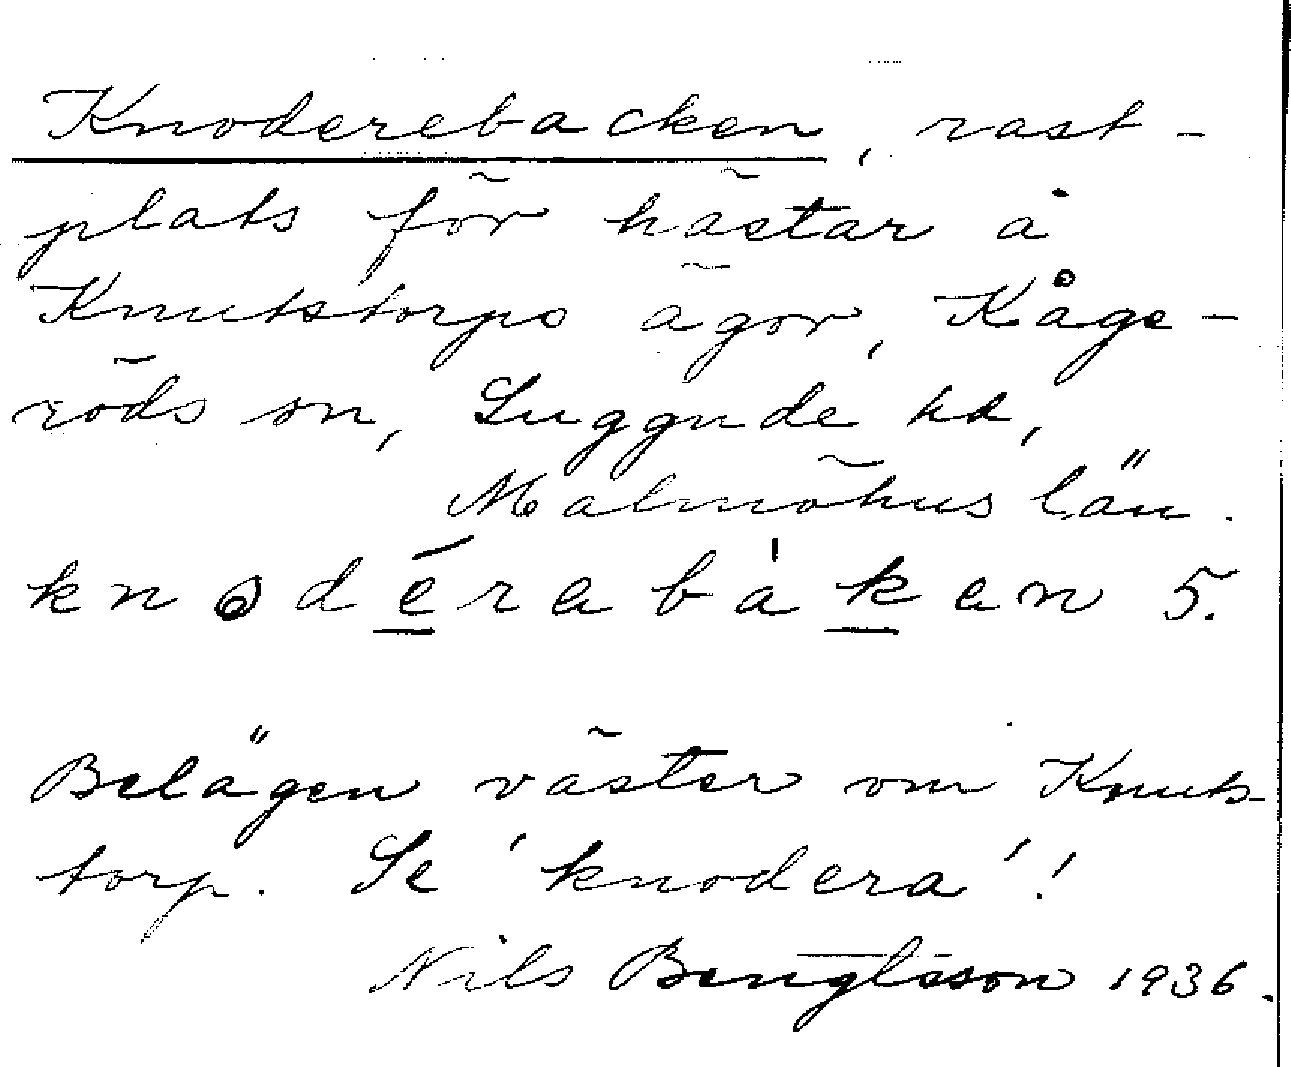 Knoderebacken, rast-
plats för hästar å
Knutstorps ägor, Kåge-
röds sn, Luggude hd,
Malmöhus län.
knodérabákan 5.
Belägen väster om Knuts-
torp. Se 'knodera'!
Nils Bengtsson 1936.